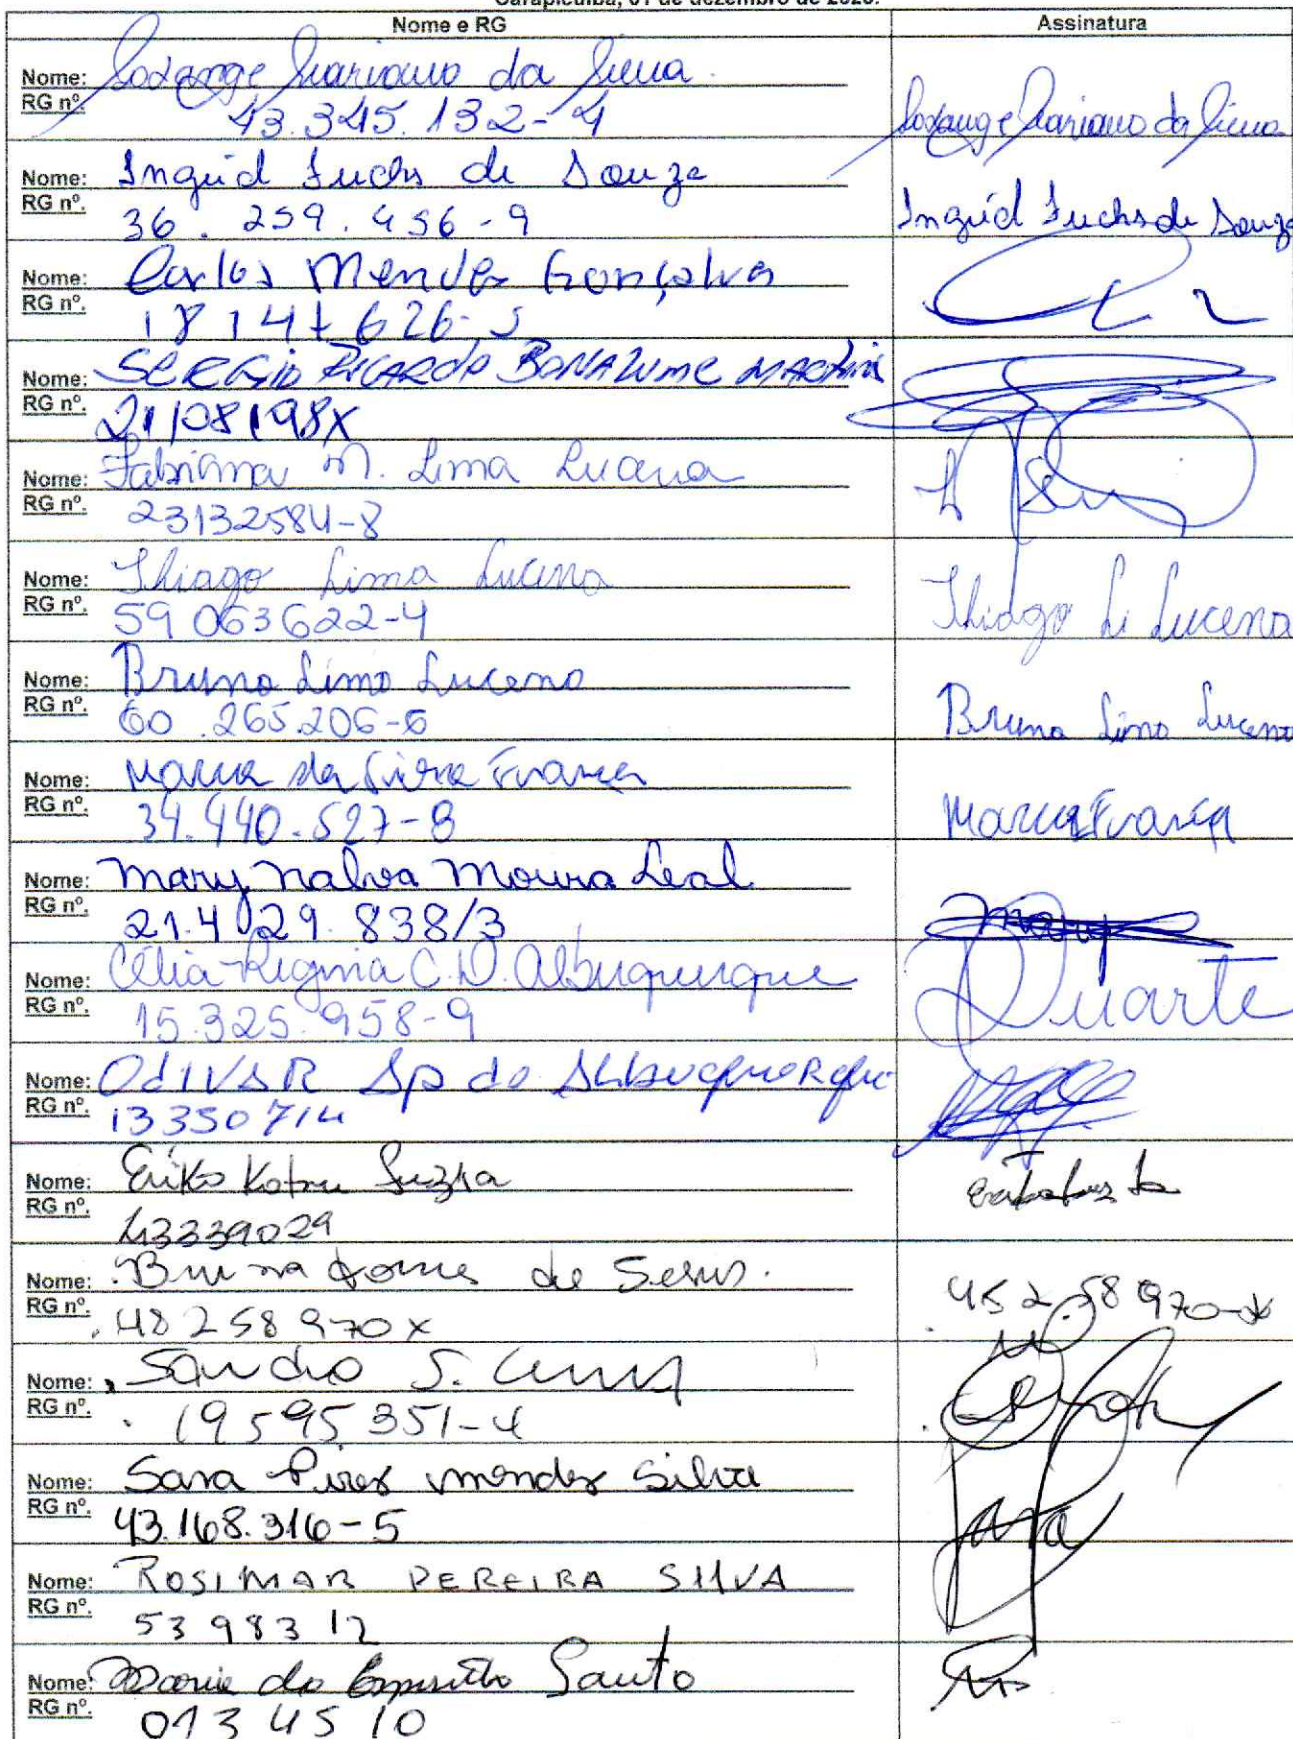 Carapicuíba, 01 de dezembro de 2020.
Nome e RG Assinatura
Nome: Solange Mariano da Silva
RG nº. 43.345.132-4 Solange Mariano da Silva
Nome: Ingrid Fuchs de Souza
RG nº. 36.259.456-9 Ingrid Fuchs de Souza
Nome: Carlos Mendes Gonçalves
RG nº. 18147626-5
Nome: SERGIO RICARDO BONAZUME MARTINS
RG nº. 21108198X
Nome: Fabiana M. Lima Lucena
RG nº. 23132584-8
Nome: Thiago Lima Lucena
RG nº. 59063622-4 Thiago Li Lucena
Nome: Bruno Lima Lucena
RG nº. 60.265.206-6 Bruno Lima Lucena
Nome: Marcia da França
RG nº. 34.440.527-8 Marcia França
Nome: Mary Nalva Moura Leal
RG nº. 21.4029.838/3 Mary
Nome: Célia Regina C.D. Albuquerque
RG nº. 15.325.958-9 Duarte
Nome: OdIVAR Ap de Albuquerque
RG nº. 13350714
Nome: Eriko
RG nº. 43339029
Nome: Bruna Gomes de Jesus.
RG nº. 48258970X
Nome: Sandro S.
RG nº. 19595351-4
Nome: Sara Pires Mendes Silva
RG nº. 43.168.316-5 Sara
Nome: ROSIMAR PEREIRA SILVA
RG nº. 5398312
Nome: Maria do Espírito Santo
RG nº. 0134510